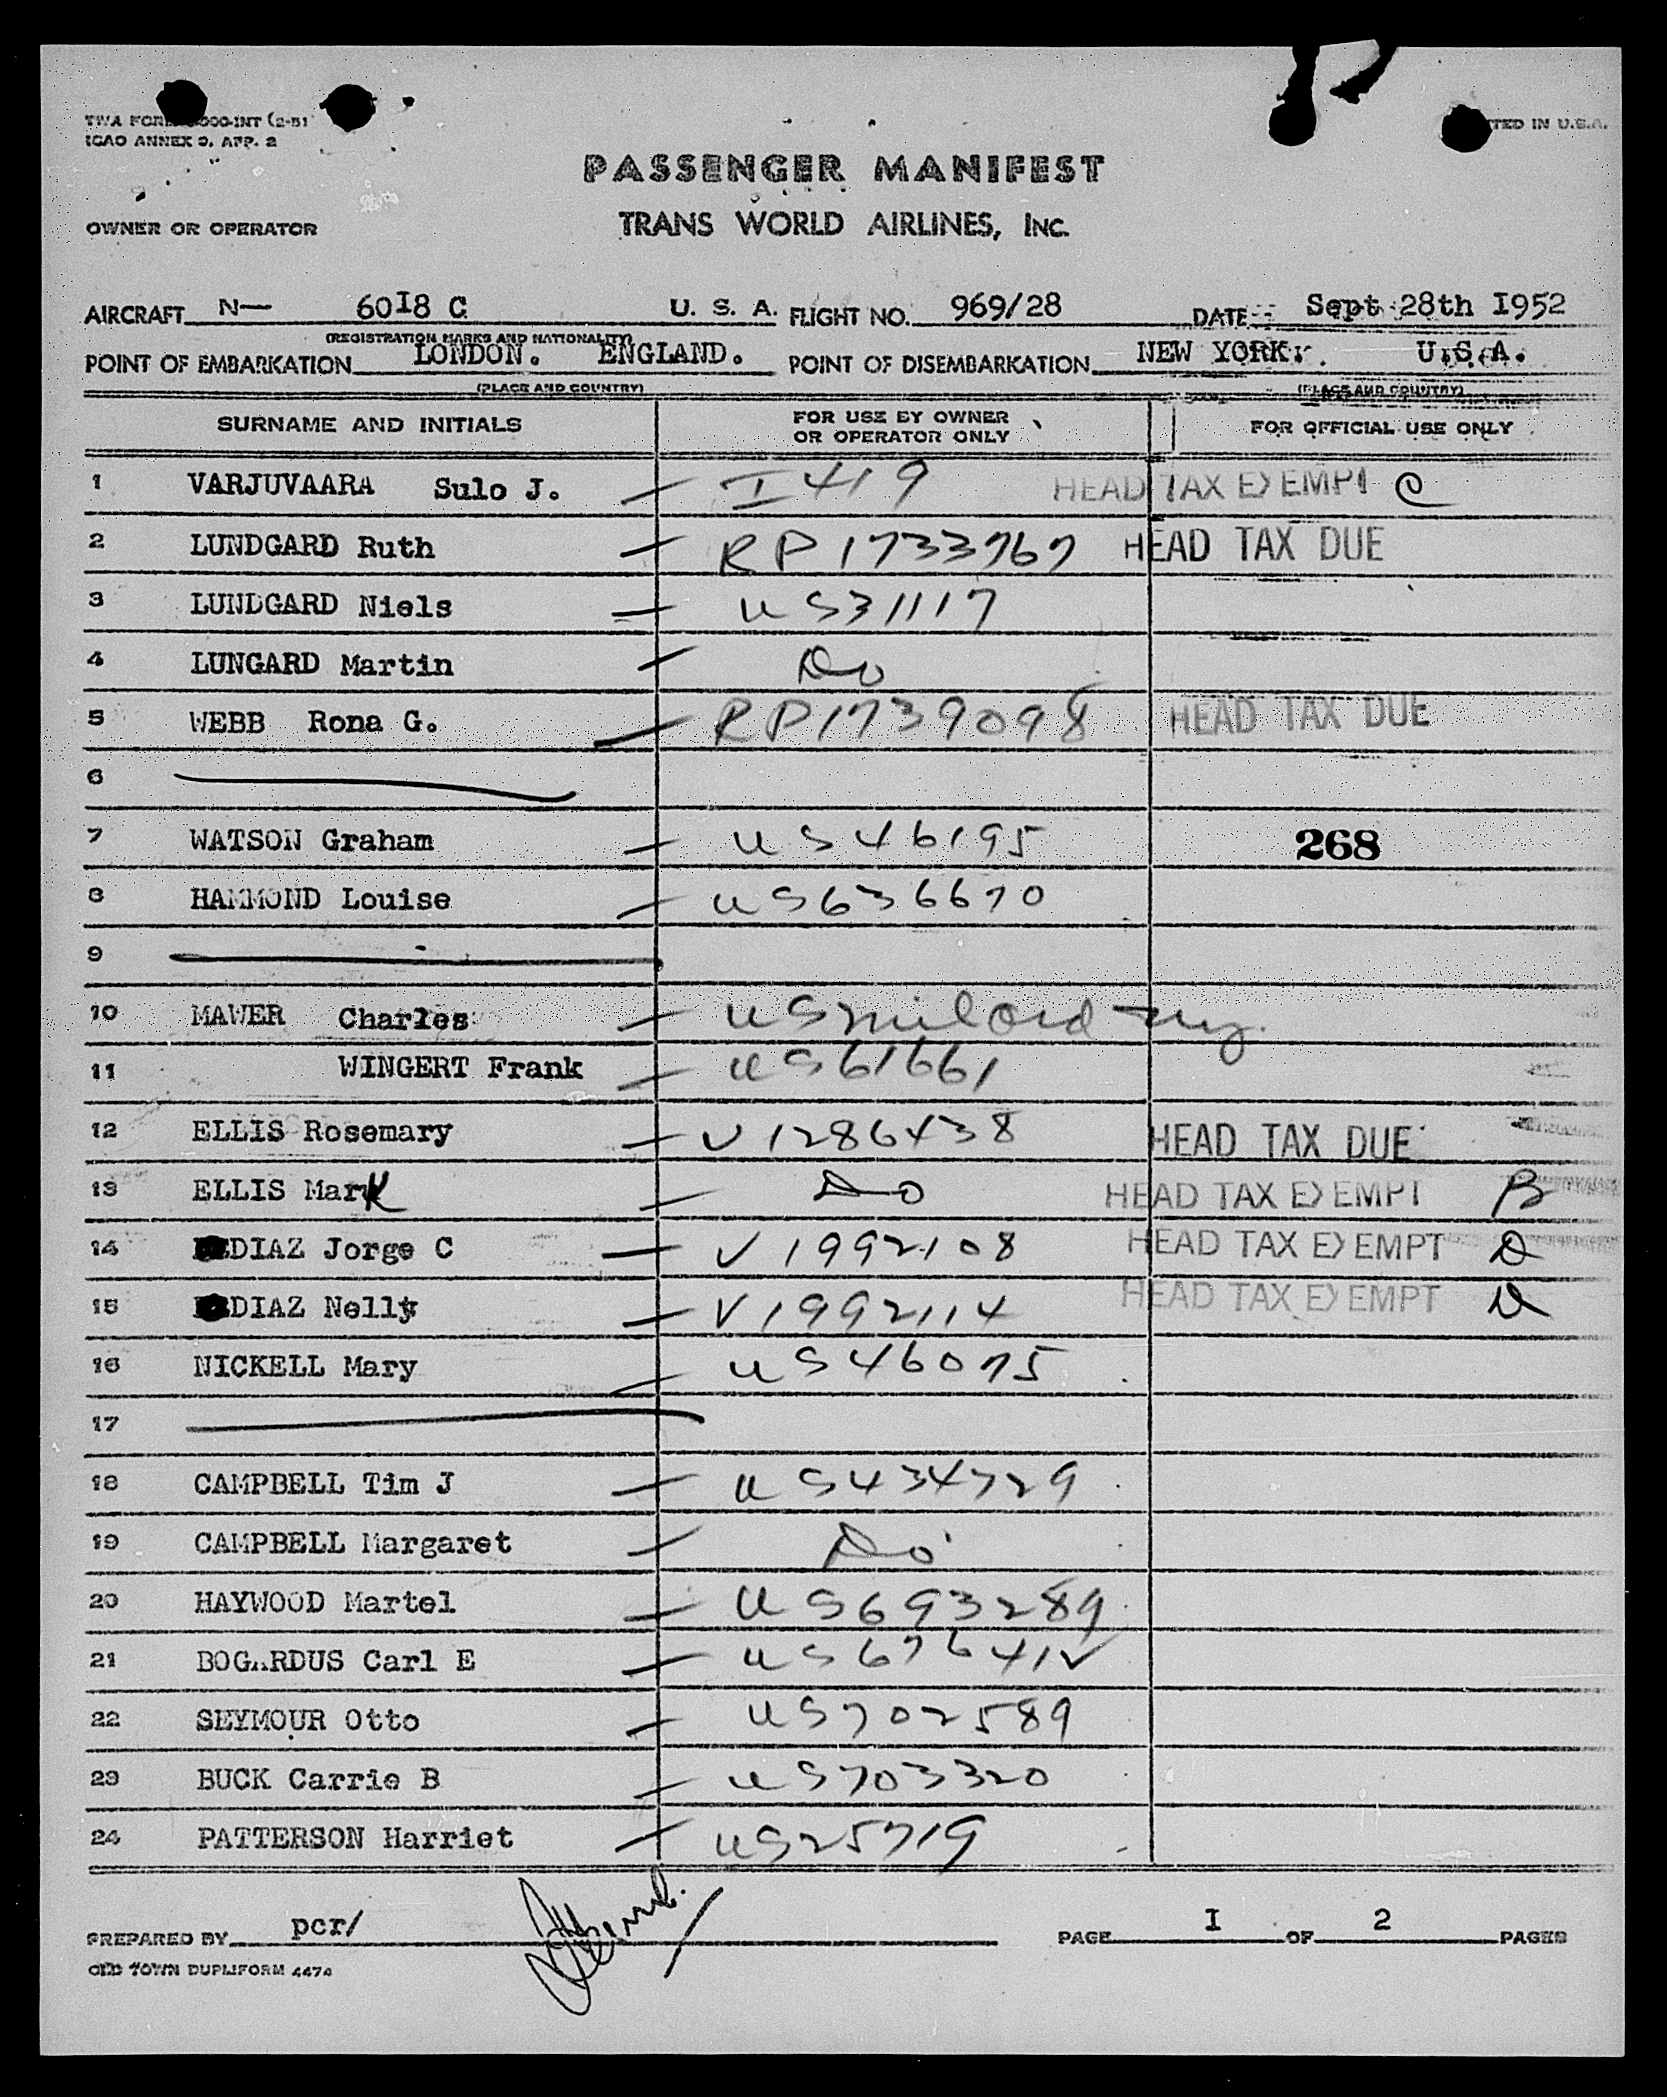 TWA FORM 000-INT (2-51
ICAO ANNEX 9, APP. 2
TED IN U.S.A.
PASSENGER MANIFEST
OWNER OR OPERATOR
TRANS WORLD AIRLINES, INC.
AIRCRAFT N— 60I8 C U. S. A. FLIGHT NO. 969/28 DATE Sept 28th I952
(REGISTRATION MARKS AND NATIONALITY)
POINT OF EMBARKATION LONDON. ENGLAND. POINT OF DISEMBARKATION NEW YORK. U.S.A.
(PLACE AND COUNTRY) (PLACE AND COUNTRY)
SURNAME AND INITIALS FOR USE BY OWNER OR OPERATOR ONLY FOR OFFICIAL USE ONLY
1 VARJUVAARA Sulo J. — I 419 HEAD TAX EXEMPT C
2 LUNDGARD Ruth — RP 1733767 HEAD TAX DUE
3 LUNDGARD Niels — US31117
4 LUNGARD Martin — Do
5 WEBB Rona G. — RP1739098 HEAD TAX DUE
6
7 WATSON Graham — US46195 268
8 HAMMOND Louise — US636670
9
10 MAWER Charles — US mil Ord
11 WINGERT Frank — US61661
12 ELLIS Rosemary — V1286438 HEAD TAX DUE
13 ELLIS Mark — Do HEAD TAX EXEMPT B
14 DIAZ Jorge C — V1992108 HEAD TAX EXEMPT D
15 DIAZ Nelly — V1992114 HEAD TAX EXEMPT D
16 NICKELL Mary — US46075
17
18 CAMPBELL Tim J — US434729
19 CAMPBELL Margaret — Do
20 HAYWOOD Martel — US693289
21 BOGARDUS Carl E — US676412
22 SEYMOUR Otto — US702589
23 BUCK Carrie B — US703320
24 PATTERSON Harriet — US25719
PREPARED BY pcr/ PAGE I OF 2 PAGES
OLD TOWN DUPLIFORM 4474